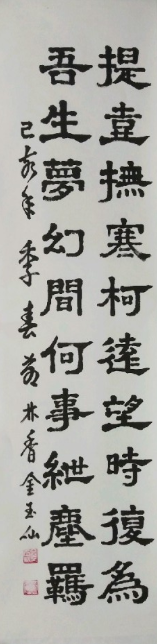 提壺撫寒柯遠望時復為
吾生夢幻間何事紲塵羈
己亥年季春節林香金玉仙